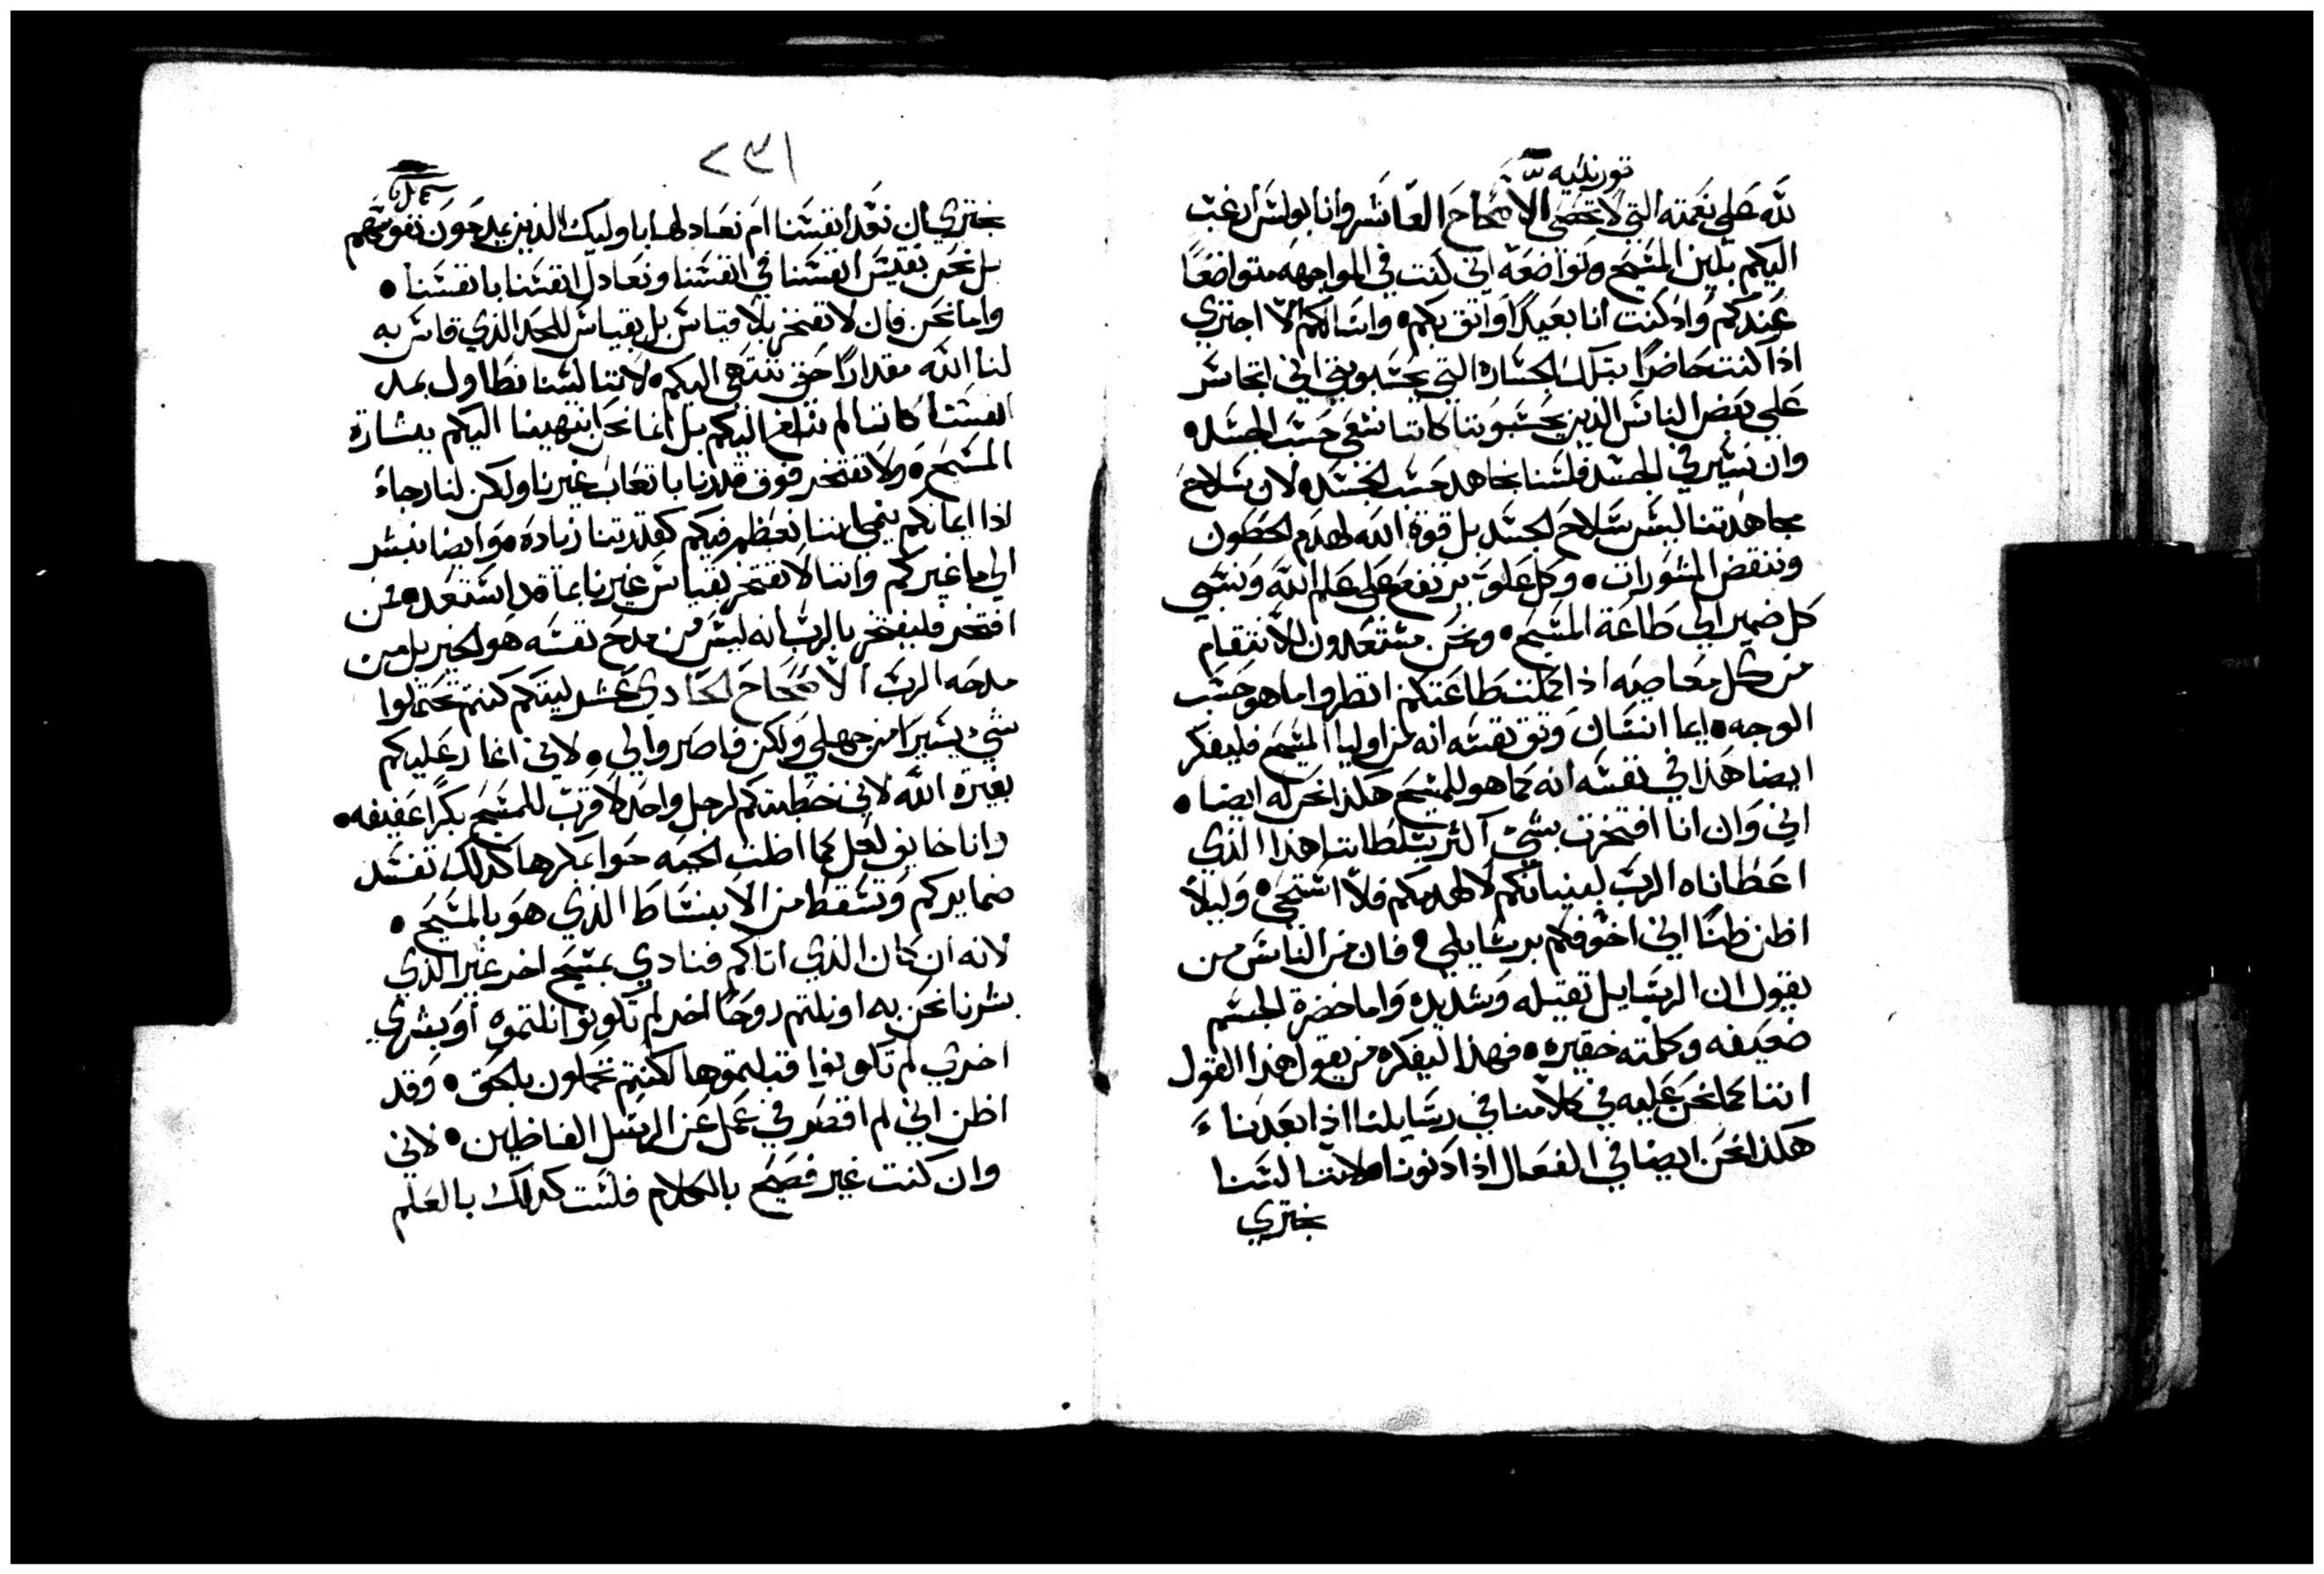 قورنثيه
لله علي نعمته التي لا تحصى الاصحاح العاشر وانا بولس ارغب
اليكم بلين المسيح وتواضعه اني كنت في المواجهه متواضعًا
عندكم واذ كنت انا بعيدًا واثق بكم واسالكم الا اجتري
اذا كنت حاضرًا بتلك الجساره التي يحسبونني اني اتجاسر
علي بعض الناس الذين يحسبوننا كاننا نسعي حسب الجسد
وان نسير في الجسد فلسنا نجاهد حسب الجسد لان سلاح
مجاهدتنا ليس سلاح الجسد بل قوة الله لهدم الحصون
وننقض المشورات وكل علو يرتفع علي علم الله ونسبي
كل ضمير الي طاعة المسيح ونحن مستعدون للانتقام
من كل معاصيه اذا كملت طاعتكم انظروا ما هو حسب
الوجه ايما انسان وثق بنفسه انه من اوليا المسيح فليفكر
ايضا هذا في نفسه انه كما هو للمسيح هكذا نحن له ايضا
اني وان انا افتخرت بشي اكثر بسلطاننا هذا الذي
اعطاناه الرب لبنيانكم لا لهدمكم فلا استحي وليلا
اظن ظنًا اني اخوفكم برسايلي فان من الناس من
يقول ان الرسايل ثقيله وشديده واما حضرة الجسم
ضعيفه وكلمته حقيره فهذا ليفكره من يقول هذا القول
اننا كما نحن عليه في كلامنا في رسايلنا اذا بعدنا
هكذا نحن ايضا في الفعال اذا دنونا لاننا لسنا
نجتري
٢٣١
نجتري ان نعد انفسنا ام نعادلها باوليك الذين يمدحون نفوسهم
بل نحن نقيس انفسنا في انفسنا ونعادل انفسنا بانفسنا
واما نحن فان لا نفتخر بلا قياس بل بقياس للحد الذي قاس به
لنا الله مقدارًا حتي ننتهي اليكم لاننا لسنا نطاول بمد
انفسنا كاننا لم نبلغ اليكم بل انما نحن انتهينا اليكم ببشارة
المسيح ولا نفتخر فوق قدرنا باتعاب غيرنا ولكن لنا رجاءً
اذا ايمانكم ينمي اننا نعظم فيكم كقدرتنا زياده وايضا نبشر
الي ما غيركم واننا لا نفتخر بقياس غيرنا بما قد استعد من
افتخر فليفتخر بالرب انه ليس من مدح نفسه هو الخير بل من
مدحه الرب الاصحاح الحادي عشر ليتكم كنتم تحتملوا
شيء يسيرًا من جهلي ولكن فاصروا لي لاني اغار عليكم
بغيرة الله لاني خطبتكم لرجل واحد لاقرب للمسيح بكرًا عفيفه
وانا خايف لعل كما اطغت الحيه حوا بمكرها كذلك تفسد
ضمايركم وتسقط من الانبساط الذي هو بالمسيح
لانه ان كان الذي اتاكم فنادي بمسيح اخر غير الذي
بشرنا نحن به او نلتم روحًا اخر لم تكونوا نلتموه او بشري
اخري لم تكونوا قبلتموها لكنتم تحملون بالحق وقد
اظن اني لم اقصر في عمل عن الرسل الفاضلين لاني
وان كنت غير فصيح بالكلام فلست كذلك بالعلم